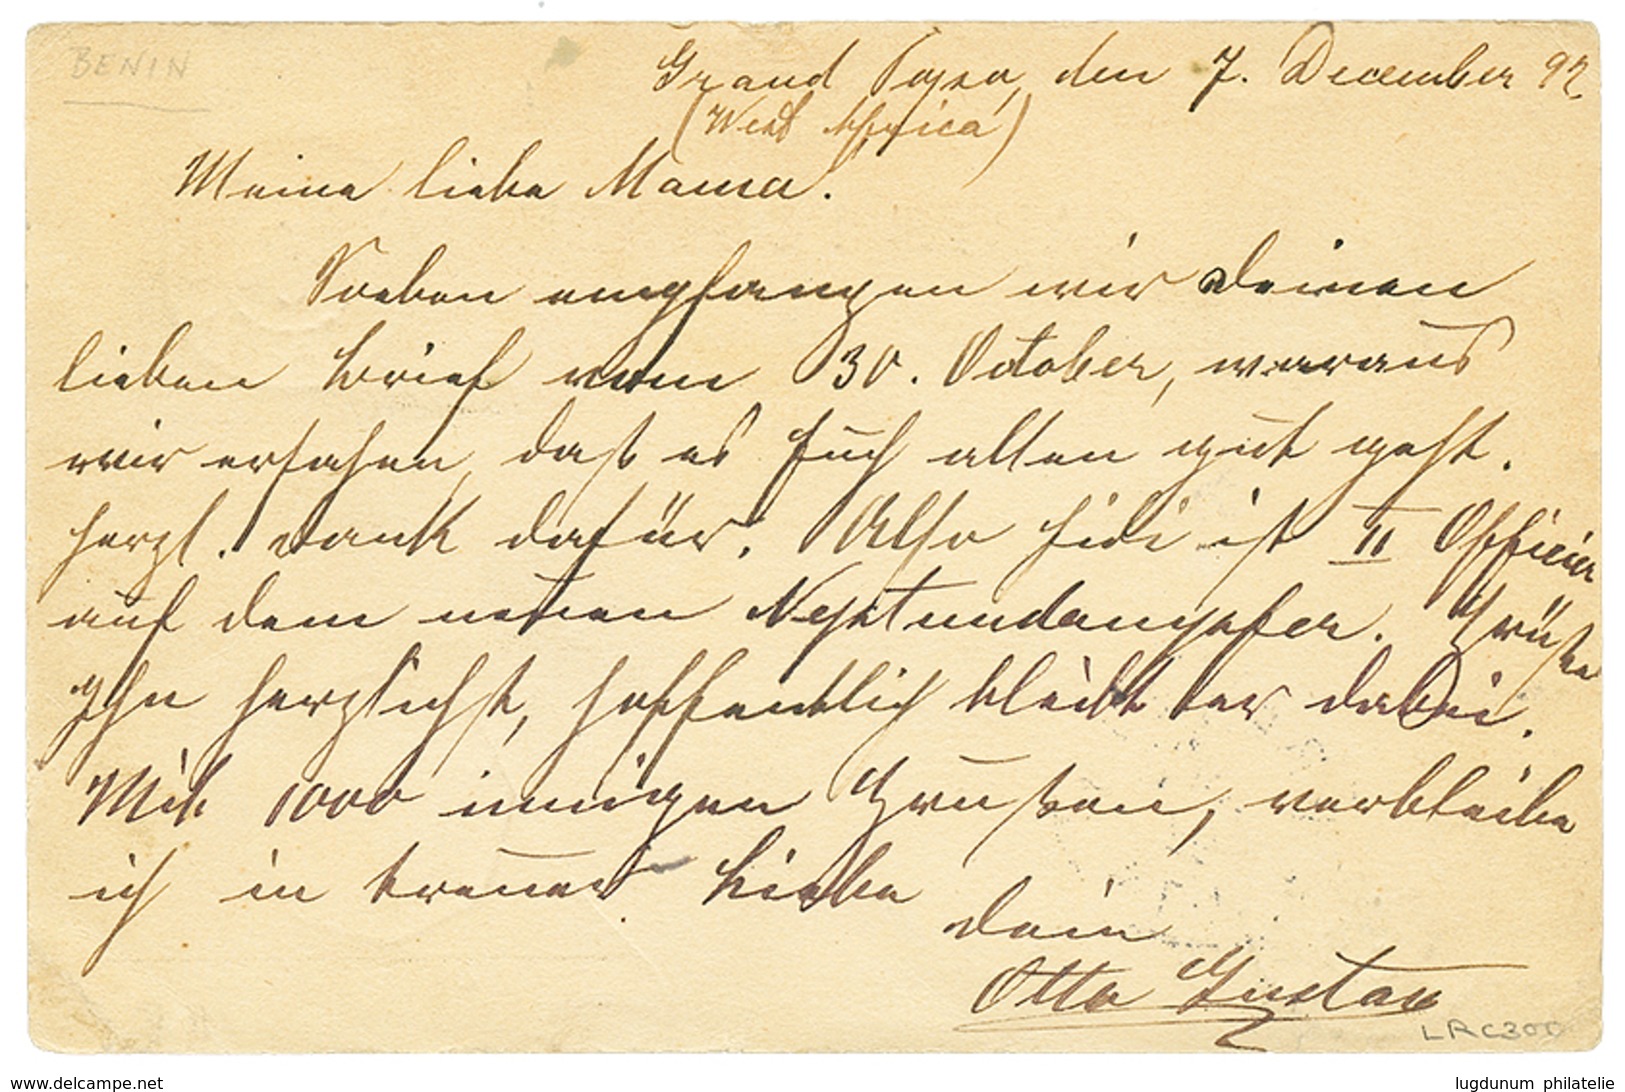 BENIN
Grand Popo, den 7. December 92
(West Africa)
Meine liebe Mama.
Soeben empfangen wir Deinen
lieben Brief vom 30. October, woraus
wir ersahen, daß es Euch allen gut geht.
herzl. Dank dafür. Also Fidi ist II Officier
auf dem neuen Neptundampfer. Grüße
Ihn herzlichst, hoffentlich bleibt er dabei.
Mit 1000 innigen Grüßen, verbleibe
ich in treuer Liebe
Dein
Otto Gustav
LRC300
www.delcampe.net
lugdunum philatelie